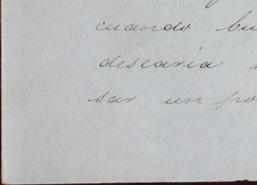 cuando bu
desearia
sar un po